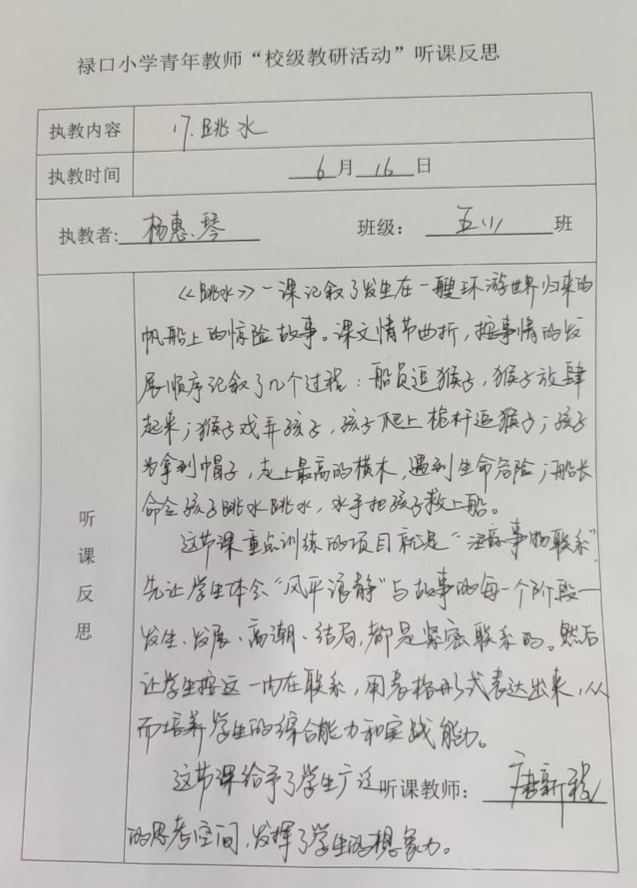 禄口小学青年教师“校级教研活动”听课反思
执教内容 17.跳水
执教时间 6月16日
执教者:杨惠琴 班级：五(1)班
听课反思
《跳水》一课记叙了发生在一艘环游世界归来的
帆船上的惊险故事。课文情节曲折，按事情的发
展顺序记叙了几个过程：船员逗猴子，猴子放肆
起来；猴子戏弄孩子，孩子爬上桅杆追猴子；孩子
为拿到帽子，走上最高的横木，遇到生命危险；船长
命令孩子跳水跳水，水手把孩子救上船。
这节课重点训练的项目就是“注意事物联系”，
先让学生体会“风平浪静”与故事的每一个阶段一
发生、发展、高潮、结局，都是紧密联系的。然后
让学生按这一内在联系，用表格形式表达出来，从
而培养学生的综合能力和实践能力。
这节课给予了学生广泛
听课教师：唐新
的思考空间，发挥了学生的想象力。